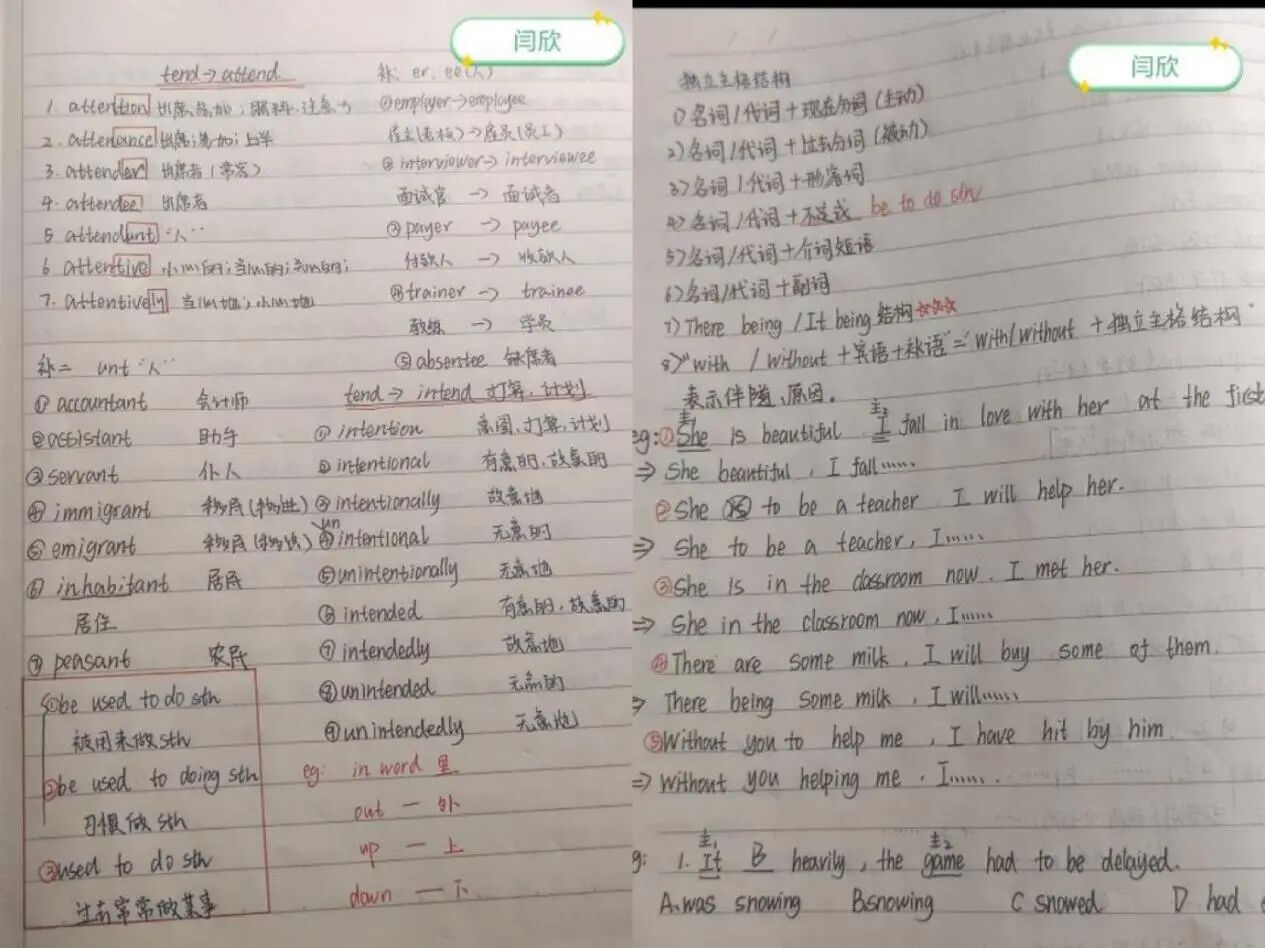 闫欣
tend→attend
1. attention 出席,参加;照料,注意力
2. attentance 出席;参加;上学
3. attender 出席者(常客)
4. attendee 出席者
5 attendant "人"
6 attentive 小心的;当心的;
7. attentively 当心地;小心地
补二 ant "人"
① accountant 会计师
② assistant 助手
③ servant 仆人
④ immigrant 移民(移进)
⑤ emigrant 移民(移出)
⑥ inhabitant 居民
居住
⑦ peasant 农民
①be used to do sth
被用来做sth
②be used to doing sth
习惯做sth
③used to do sth
过去常常做某事
补: er, ee(人)
①employer→employee
雇主(老板)→雇员(员工)
② interviewer→ interviewee
面试官 → 面试者
③ payer → payee
付款人 → 收款人
④trainer → trainee
教练 → 学员
⑤absentee 缺席者
tend→ intend 打算,计划
① intention 意图,打算,计划
② intentional 有意的,故意的
③ intentionally 故意地
④ unintentional 无意的
⑤unintentionally 无意地
⑥ intended 有意的,故意的
⑦ intendedly 故意地
⑧unintended 无意的
⑨unintendedly 无意地
eg: in word 里
out — 外
up — 上
down — 下
闫欣
独立主格结构
1)名词/代词+现在分词(主动)
2)名词/代词+过去分词(被动)
3)名词/代词+形容词
4)名词/代词+不定式 be to do sth
5)名词/代词+介词短语
6)名词/代词+副词
7)There being /It being结构☆☆☆
8)"with / without +宾语+补语"="with/without +独立主格结构"
表示伴随,原因。
主1 主2
eg:①She is beautiful, I fall in love with her at the first
⇒ She beautiful, I fall……
②She is to be a teacher, I will help her.
⇒ She to be a teacher, I……
③She is in the classroom now, I met her.
⇒ She in the classroom now, I……
④There are some milk, I will buy some of them.
⇒ There being some milk, I will……
⑤Without you to help me, I have hit by him
⇒ Without you helping me, I……
主1 主2
g: 1. It B heavily, the game had to be delayed.
A.was snowing B.snowing C snowed D had